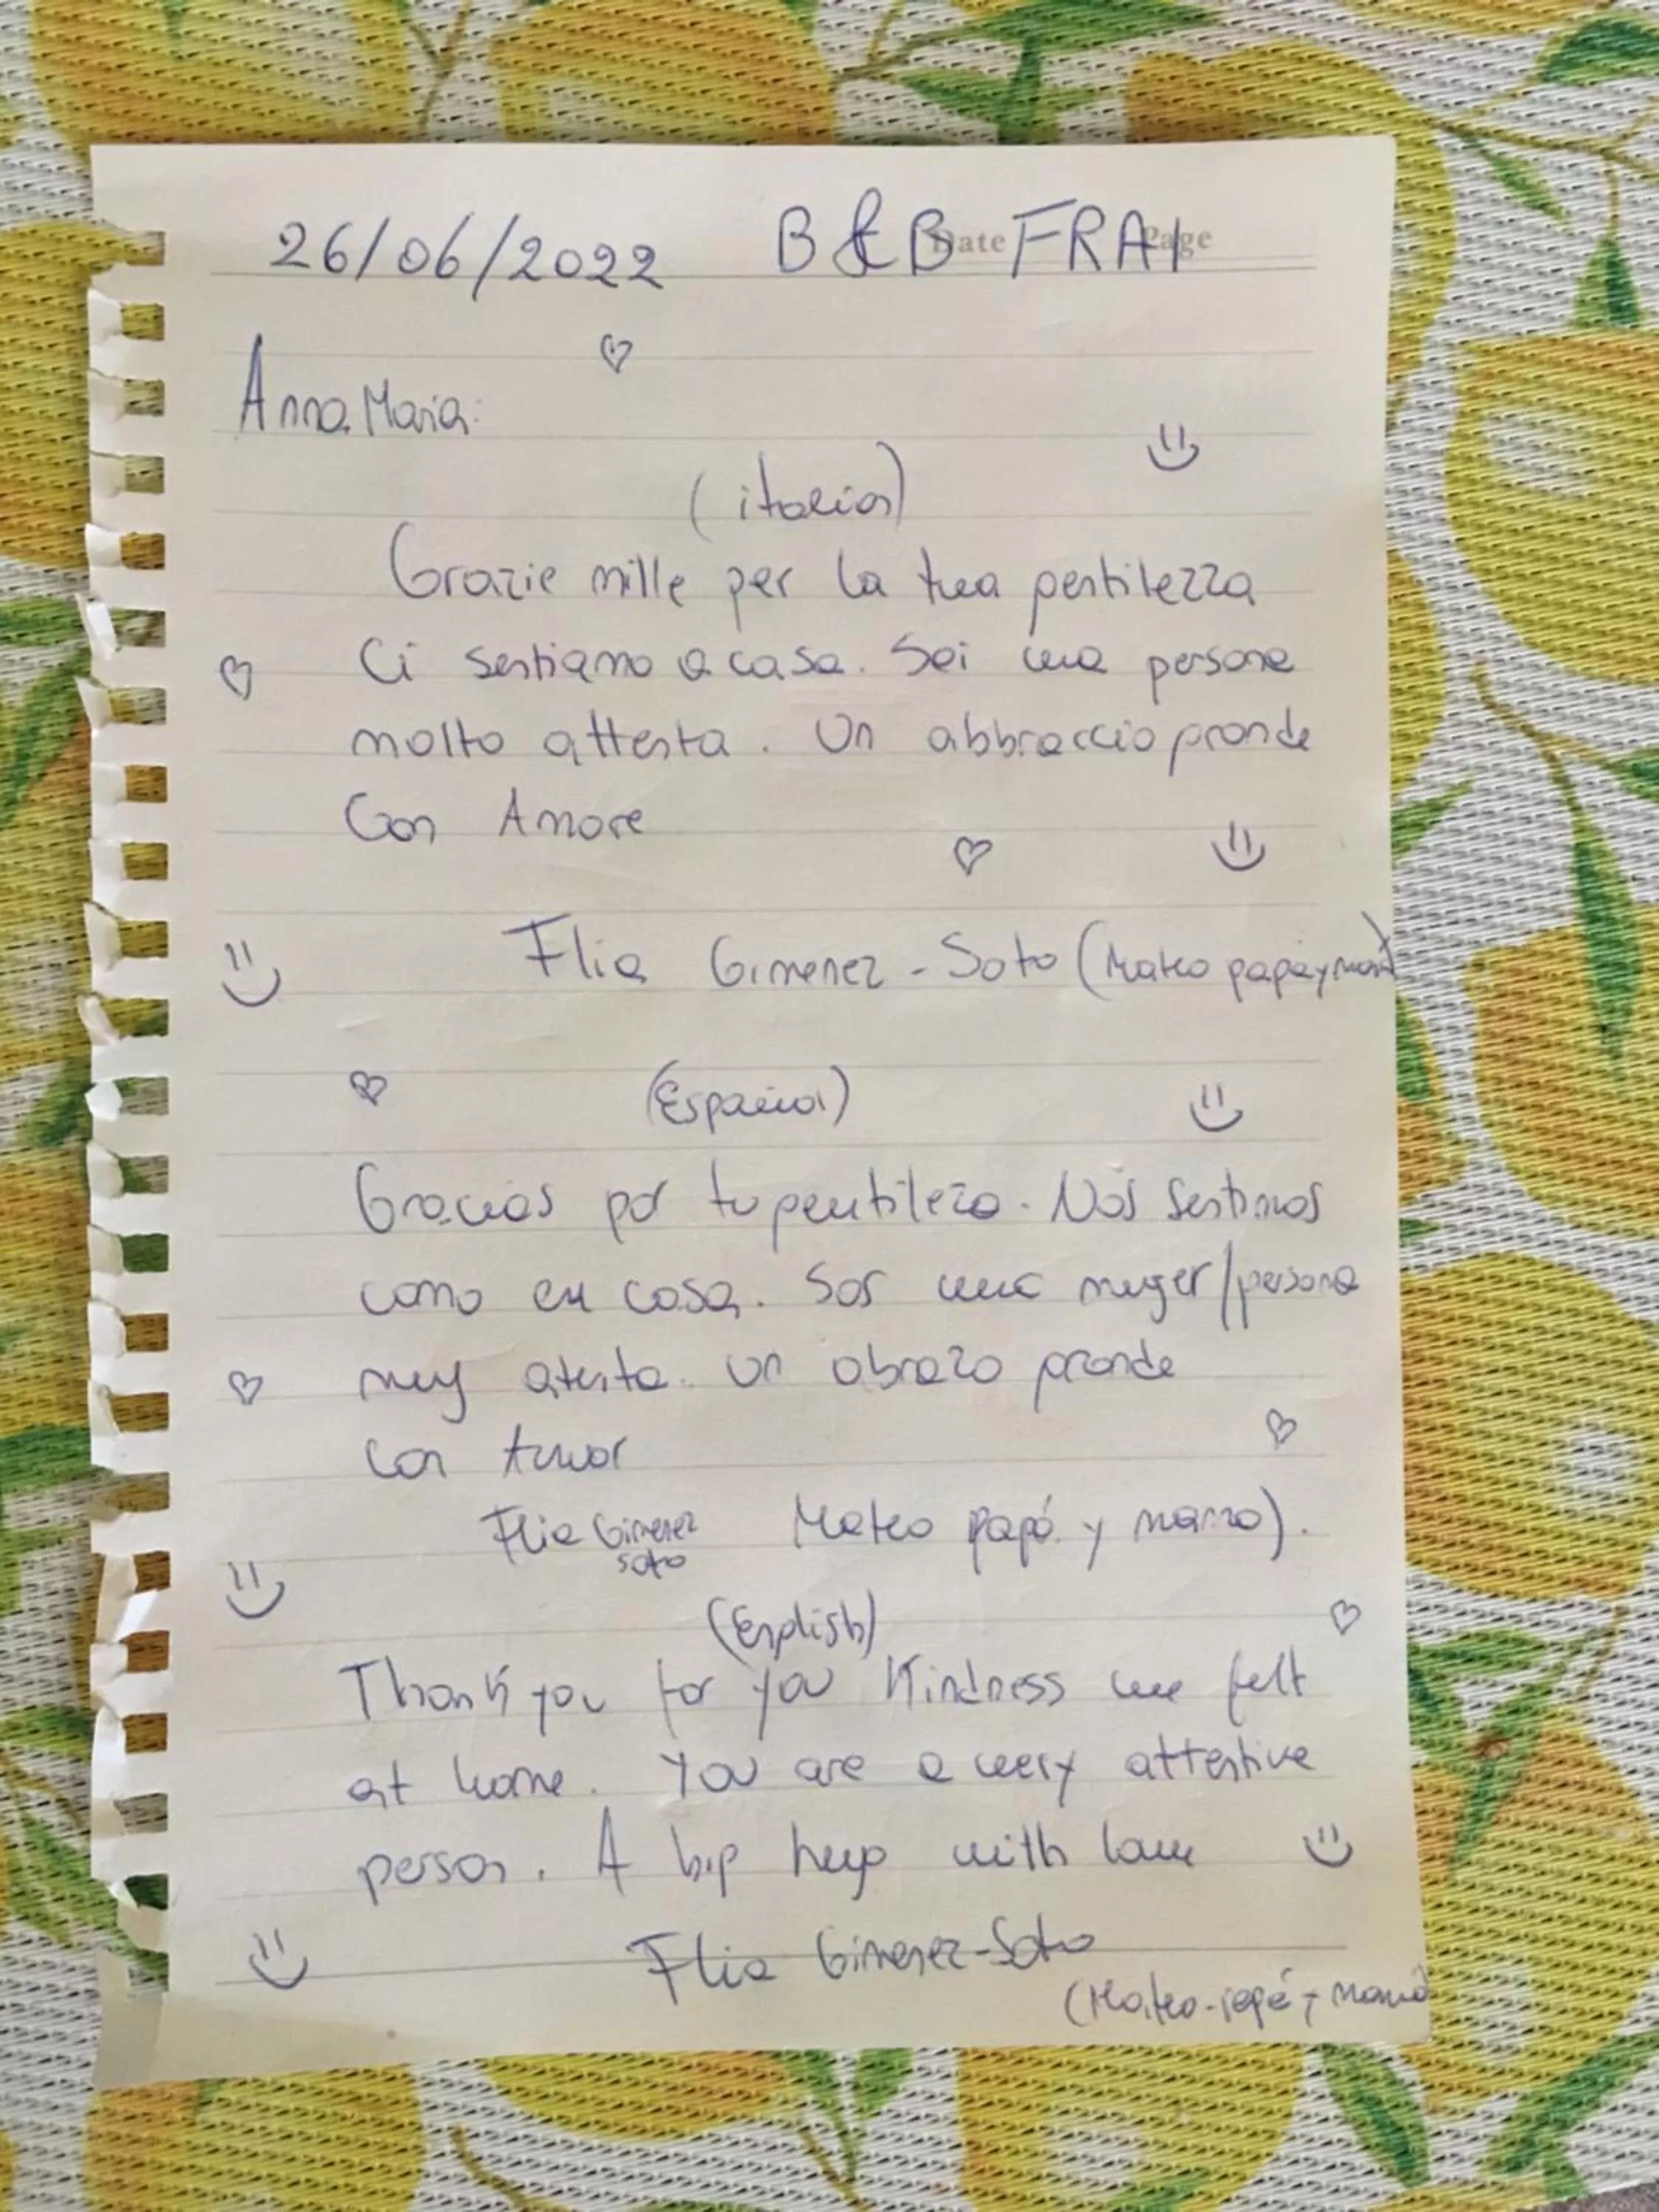 Date Page
26/06/2022 B&B FRAI
Anna Maria:
(italia)
Grazie mille per la tua gentilezza
Ci sentiamo a casa. Sei una persona
molto attenta. Un abbraccio grande
Con Amore
Flia Gimenez - Soto (Mateo papá y mamá)
(Español)
Gracias por tu gentileza. Nos sentimos
como en casa. Sos una muger/persona
muy atenta. Un abrazo grande
con Amor
Flia Gimenez Soto Mateo papá y mamá).
(English)
Thank you for you Kindness we felt
at home. You are a very attentive
person. A big hug with love
Flia Gimenez-Soto
(Mateo-papá y mamá)